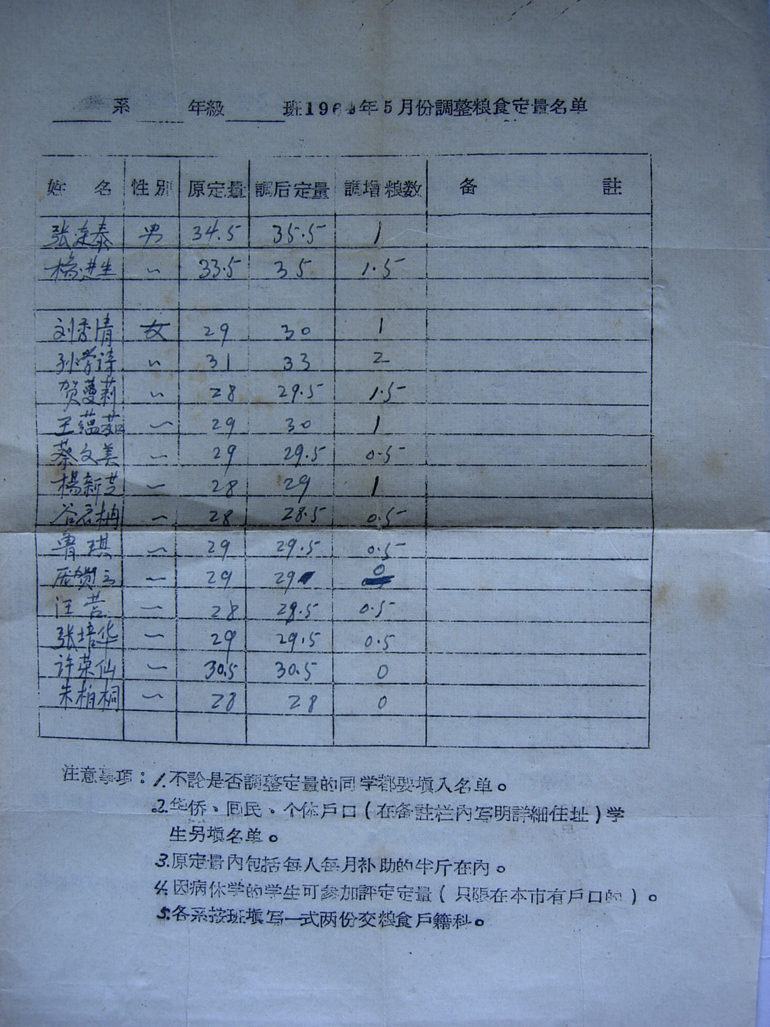 系 年級 班1964年5月份調整粮食定量名单
姓名 性別 原定量 調后定量 調增粮数 备註
张定泰 男 34.5 35.5 1
楊进生 〃 33.5 35 1.5
刘秀清 女 29 30 1
孙学诗 〃 31 33 2
贺蔓莉 〃 28 29.5 1.5
王蕴茹 〃 29 30 1
蔡文美 〃 29 29.5 0.5
楊新芝 〃 28 29 1
谷衣柟 〃 28 28.5 0.5
曹琪 〃 29 29.5 0.5
〃 29 29 0
汪芸 〃 28 28.5 0.5
张培华 〃 29 29.5 0.5
许荣仙 〃 30.5 30.5 0
朱柏桐 〃 28 28 0
注意事項：1.不論是否調整定量的同学都要填入名单。
2.华侨、回民、个体戶口（在备註栏內写明詳細住址）学
生另填名单。
3.原定量內包括每人每月补助的半斤在內。
4.因病休学的学生可参加評定定量（只限在本市有戶口的）。
5.各系按班填写一式两份交粮食戶籍科。